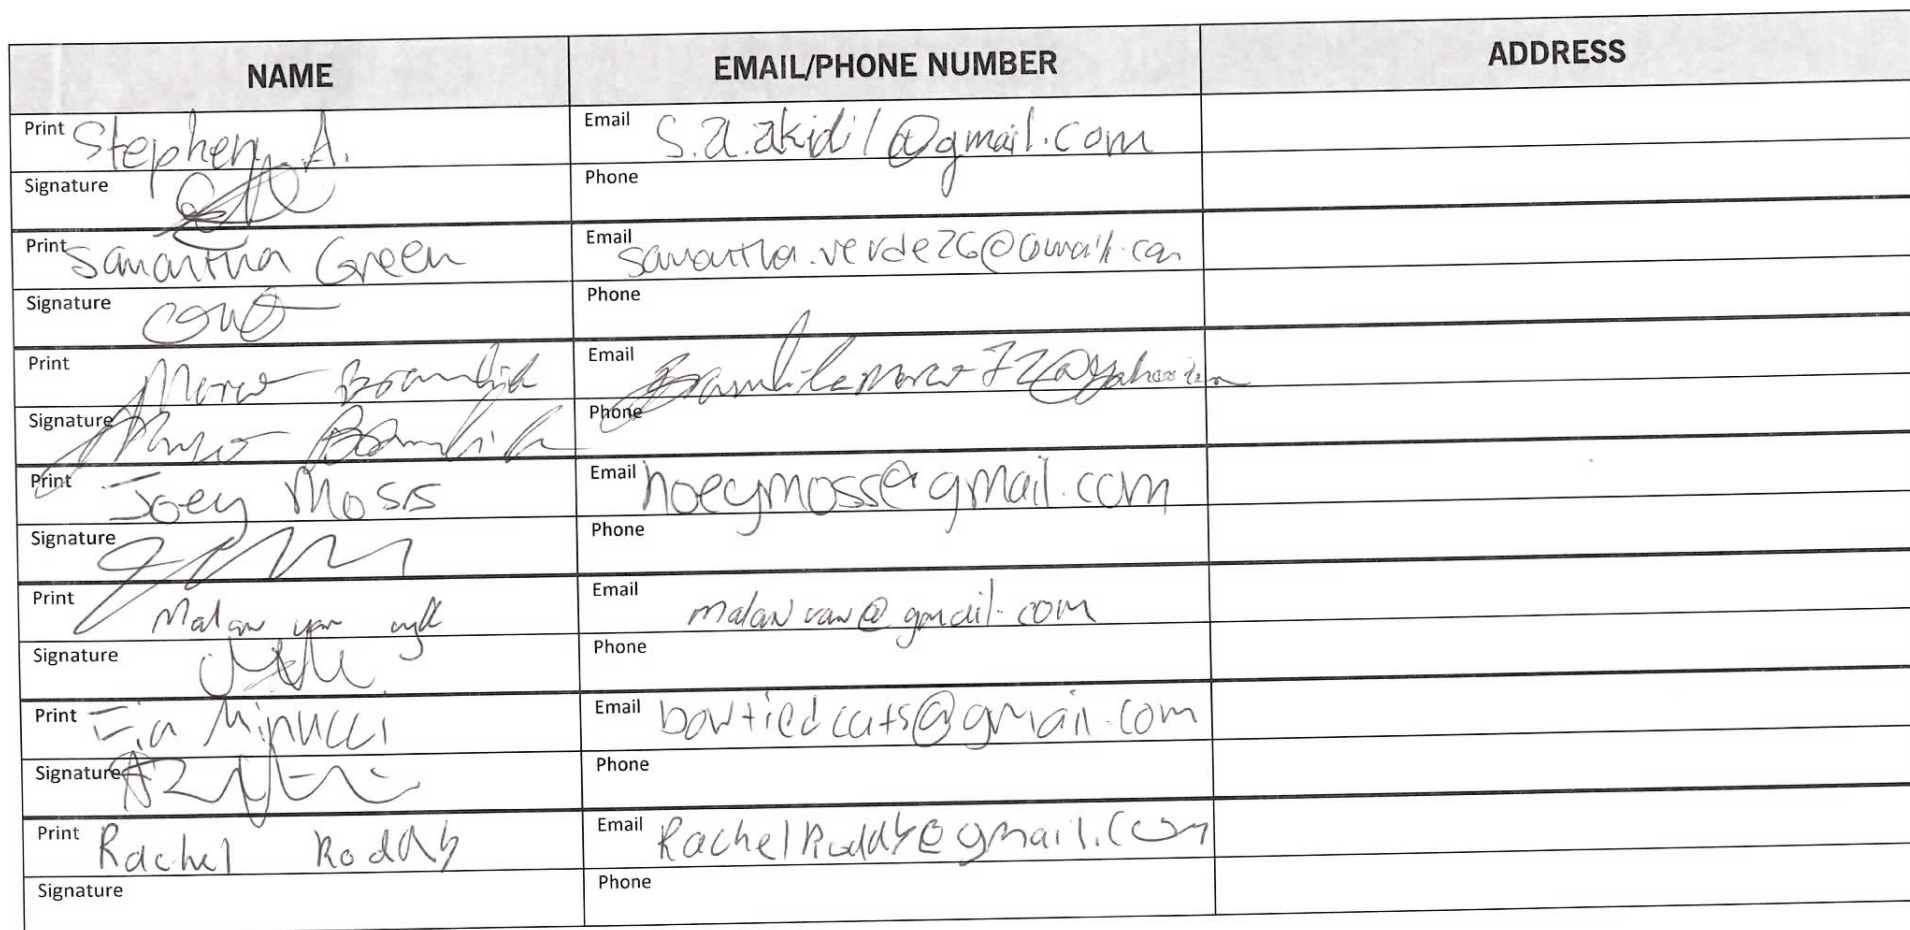 NAME EMAIL/PHONE NUMBER ADDRESS
Print Stephen A. Email s.a.akidil@gmail.com
Signature Phone
Print Samantha Green Email samantha.verde26@gmail.com
Signature Phone
Print Marco Email
Signature Marco Phone
Print Joey Moss Email hoeymoss@gmail.com
Signature Phone
Print Malan van wyk Email malanvan@gmail.com
Signature Phone
Print Minucci Email bowtiedcats@gmail.com
Signature Phone
Print Rachel Roddy Email RachelRoddy@gmail.com
Signature Phone